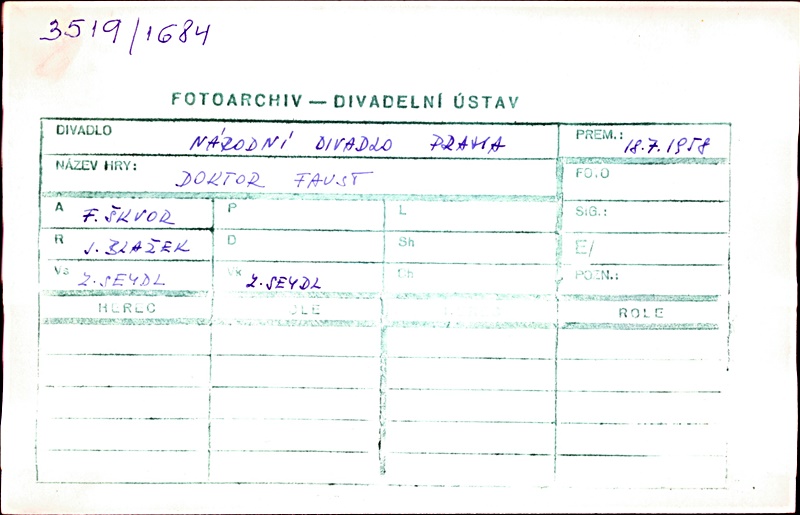 3519/1684
FOTOARCHIV — DIVADELNÍ ÚSTAV
DIVADLO NÁRODNÍ DIVADLO PRAHA PREM.: 18.7.1958
NÁZEV HRY: DOKTOR FAUST FOTO
A F. ŠKVOR P L SIG.:
R J. BLAŽEK D Sh E/
Vs Z. SEYDL Vk Z. SEYDL Ch POZN.:
HEREC ROLE ROLE